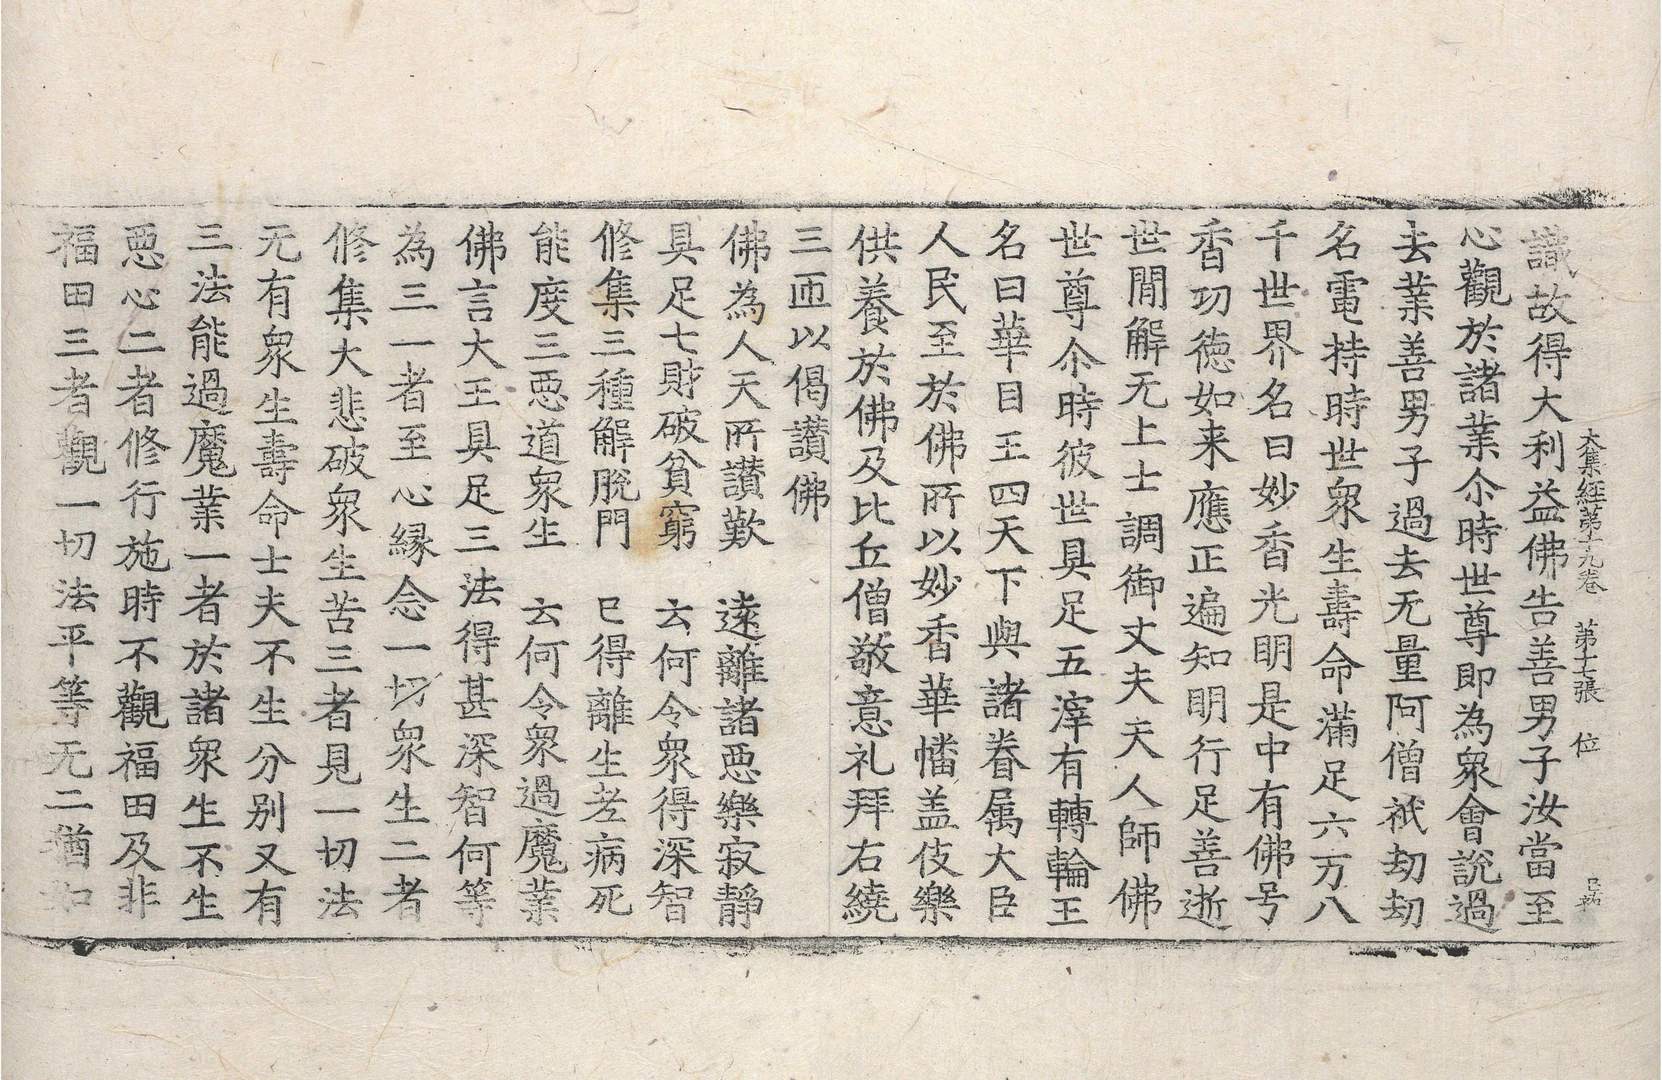 大集經第十九卷　第十七張　位
識故得大利益佛告善男子汝當至
心觀於諸業尒時世尊即為衆會說過
去業善男子過去无量阿僧祇劫劫
名電持時世衆生壽命滿足六万八
千世界名曰妙香光明是中有佛号
香功德如来應正遍知明行足善逝
世間解无上士調御丈夫天人師佛
世尊尒時彼世具足五滓有轉輪王
名曰華目王四天下與諸眷属大臣
人民至於佛所以妙香華幡盖伎樂
供養於佛及比丘僧敬意礼拜右繞
三匝以偈讃佛
佛為人天所讃歎　遠離諸惡樂寂静
具足七財破貧窮　云何令衆得深智
修集三種解脫門　已得離生老病死
能度三惡道衆生　云何令衆過魔業
佛言大王具足三法得甚深智何等
為三一者至心縁念一切衆生二者
修集大悲破衆生苦三者見一切法
无有衆生壽命士夫不生分別又有
三法能過魔業一者於諸衆生不生
惡心二者修行施時不觀福田及非
福田三者觀一切法平等无二猶如